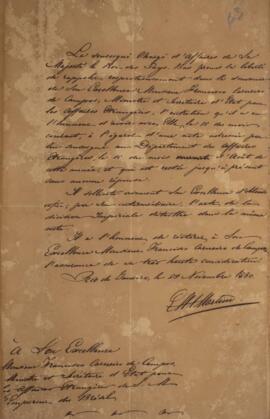 Le soussigné Chargé d'Affaires de Sa
Majesté le Roi des Pays Bas prend la liberté
de rappeler respectueusement dans le souvenir
de Son Excellence Monsieur Francisco Carneiro
de Campos, Ministre et Secrétaire d'Etat pour
les Affaires Etrangères, l'entretien qu'il a eu
l'honneur d'avoir avec Elle, le 11 du mois
courant, à l'égard d'une note adressée par
lui au Département des Affaires
Etrangères, le 11 du mois d'Août de
cette année et qui est restée jusqu'à présent
sans aucune réponse.
Il sollicite Son Excellence
par l'acte de la
Impériale dans la même
note.
Il a l'honneur de réitérer à Son
Excellence Monsieur Francisco Carneiro de Campos,
l'assurance de sa très haute considération
Rio de Janeiro, le 20 Novembre 1830.
Martini
A Son Excellence
Monsieur Francisco Carneiro de Campos
Ministre et Secrétaire d'Etat pour
les Affaires Etrangères de S. M.
l'Empereur du Brésil